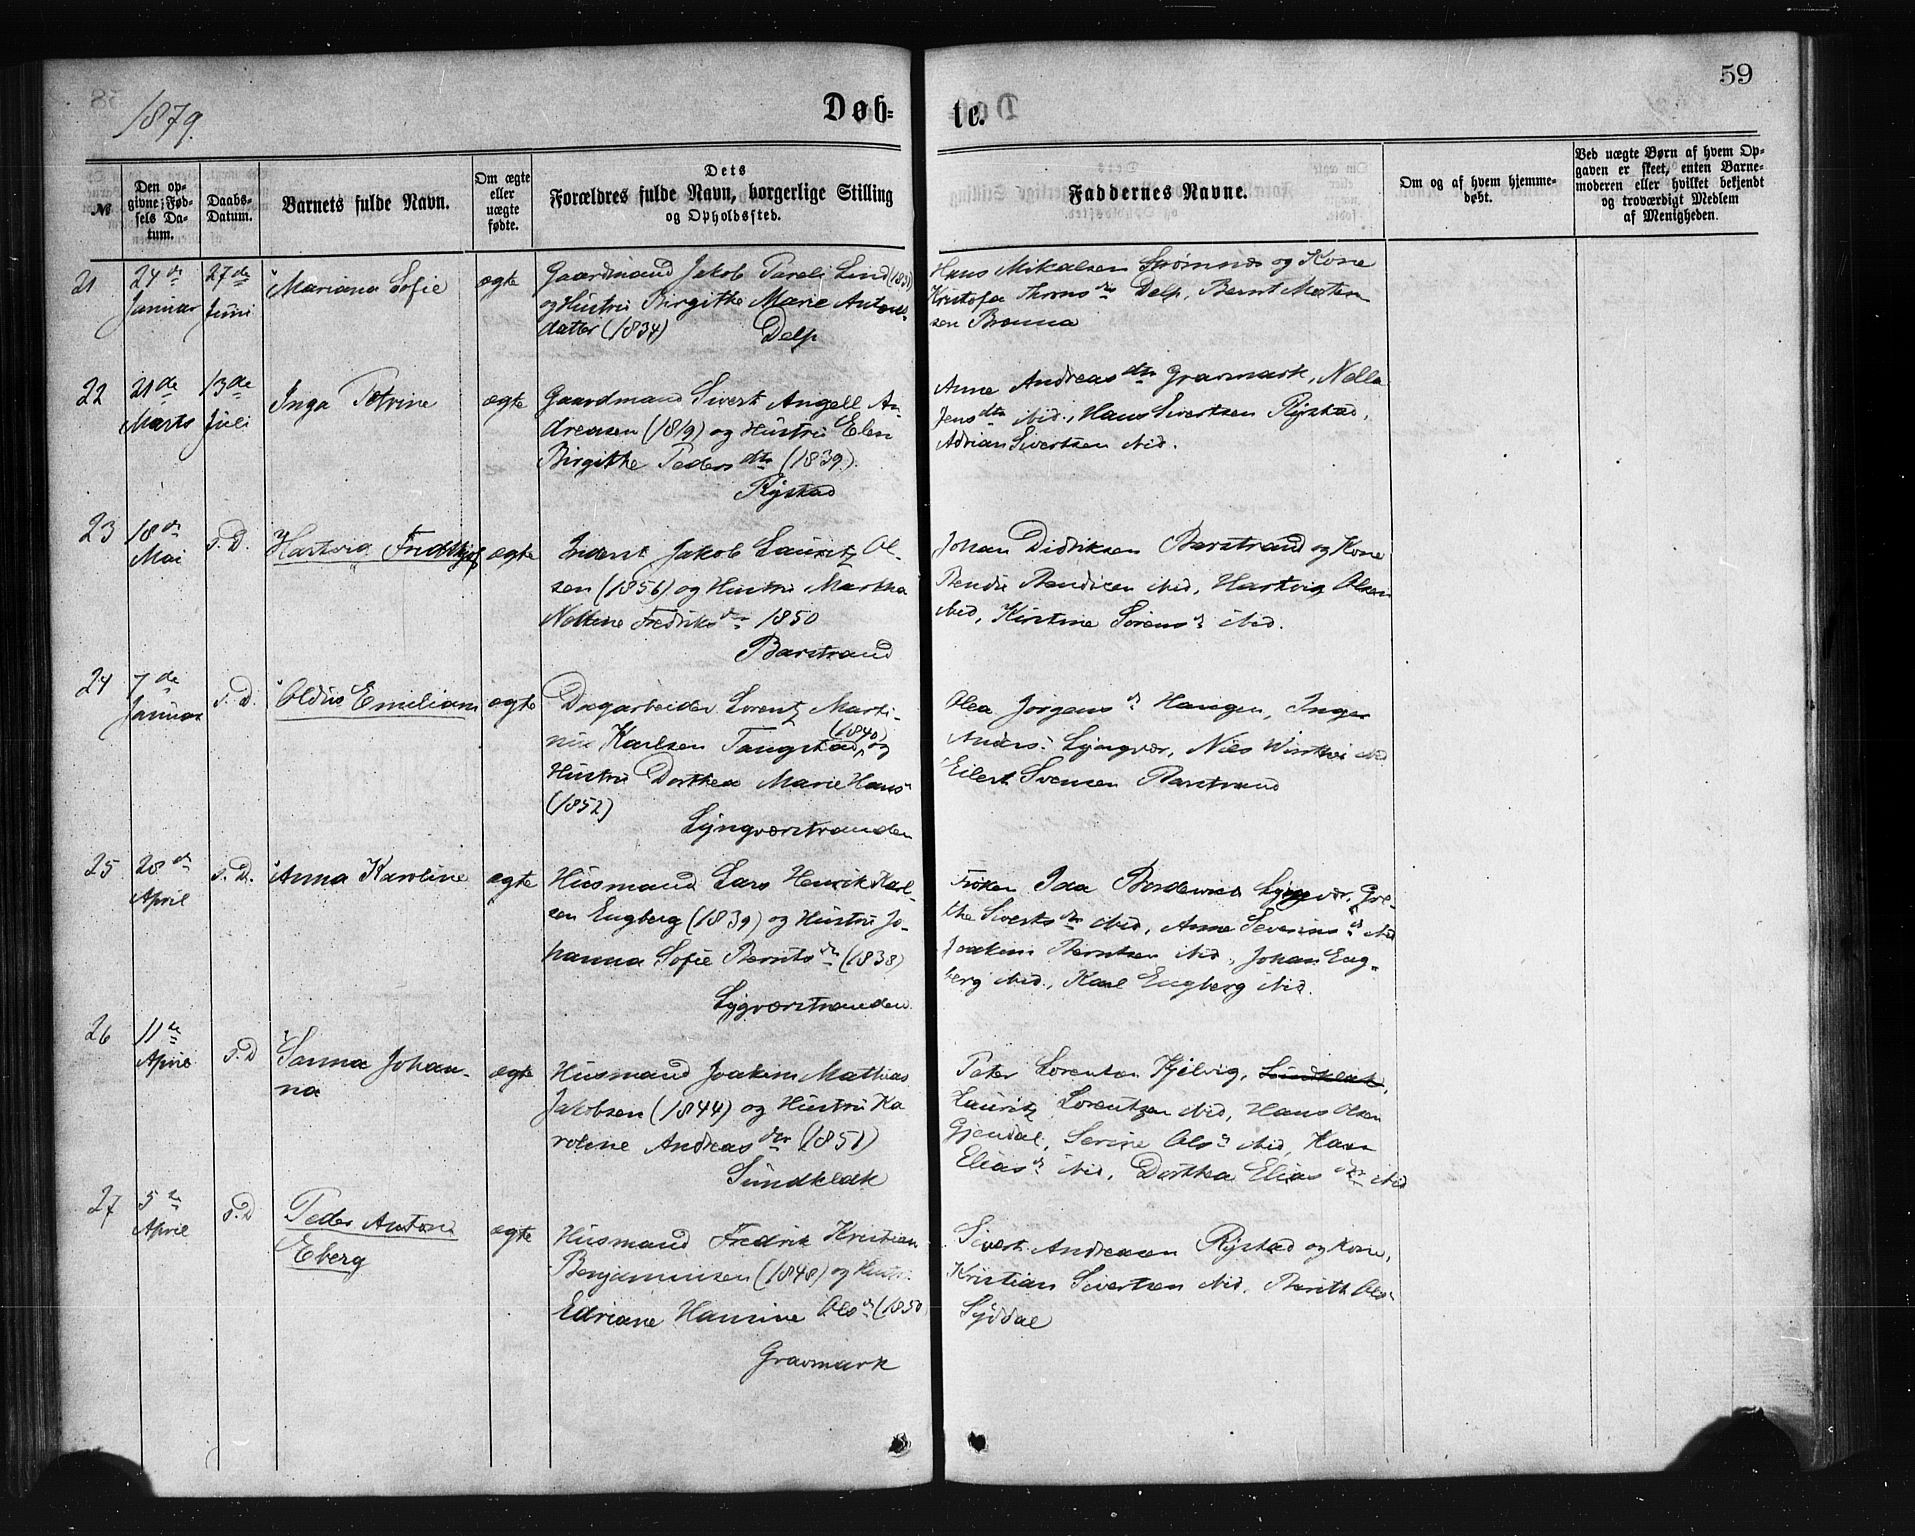 59
1879.
Døb-
te.
№
Den op-
givne Fød-
sels Da-
tum.
Daabs-
Datum.
Barnets fulde Navn.
Om ægte
eller
uægte
fødte.
Dets
Forældres fulde Navn, borgerlige Stilling
og Opholdssted.
Faddernes Navne.
Om og af hvem hjemme-
døbt.
Ved uægte Børn af hvem Op-
gaven er skeet, enten Barne-
moderen eller hvilket bekjendt
og troværdigt Medlem
af Menigheden.
21
24de
Januar
27de
Juni
Mariana Sofie
ægte
Gaardmand Jakob Pareli Lind
og Hustru Birgithe Marie Antons-
datter (1834)
Delp
Hans Mikalsen Strømnes og Kone
Kristofa Thoms dr Delp, Bernt Morten
sen Brenna
22
21de
Marts
13de
Juli
Inga Petrine
ægte
Gaardmand Sivert Angell An-
dreasen (1819) og Hustru Elen
Birgithe Peders dtr (1839).
Rystad
Anne Andreas dtr Gravmark, Nella
Jens dtr ibid., Hans Sivertsen Rystad,
Adrian Sivertsen ibid.
23
18de
Mai
s. D.
Hartvig Fredthjof
ægte
Inderst Jakob Lauritz Ol-
sen (1856) og Hustru Martha
Nekkine Fredriks dr 1850
Barstrand
Johan Didriksen Barstrand og Kone
Bendte Bendixen ibid, Hartvig Olsen
ibid, Kirstine Sørens dr ibid.
24
7de
Januar
s. D.
Oldus Emilian
ægte
Dagarbeider Lorentz Marti-
nus Karlsen Tangstad (1840) og
Hustru Dorthea Marie Hans
(1852)
Lyngværstranden
Olea Jørgens dr Haugen, Inger
Anders Lyngvær, Nils ibid
Eilert Svensen Barstrand
25
28de
April
s. D.
Anna Karoline
ægte
Husmand Lars Henrik Karl-
sen Engberg (1839) og Hustru Jo-
hanna Sofie Bernts dr (1838)
Lygværstranden
Frøken Ida Bordevick Lyngvær, Gre-
the Siverts dr ibid, Anne Severins dr ibid
Joakim Berntsen ibid, Johan Eng-
berg ibid., Karl Engberg ibid.
26
11te
April
s. D
Sanna Johan-
na
ægte
Husmand Joakim Mathias
Jakobsen (1844) og Hustru Ka
roline Andreas dr (1851)
Sundklak
Peter Lorentsen Kjelvig, Sundklak,
Lauritz Lorentzen ibid, Hans Olsen
Gjendal, Serine Ols dr ibid, Karn
Elias dr ibid, Dorthea Elias dtr ibid
27
5te
April
s. D
Peder Anton
Eberg
ægte
Husmand Fredrik Kristian
Benjaminsen (1848) og Hustru
Edriane Hansine Ols dr (1850
Gravmark
Sivert Andreasen Rystad og Kone,
Kristian Sivertsen ibid, Berith Ols
Syddal